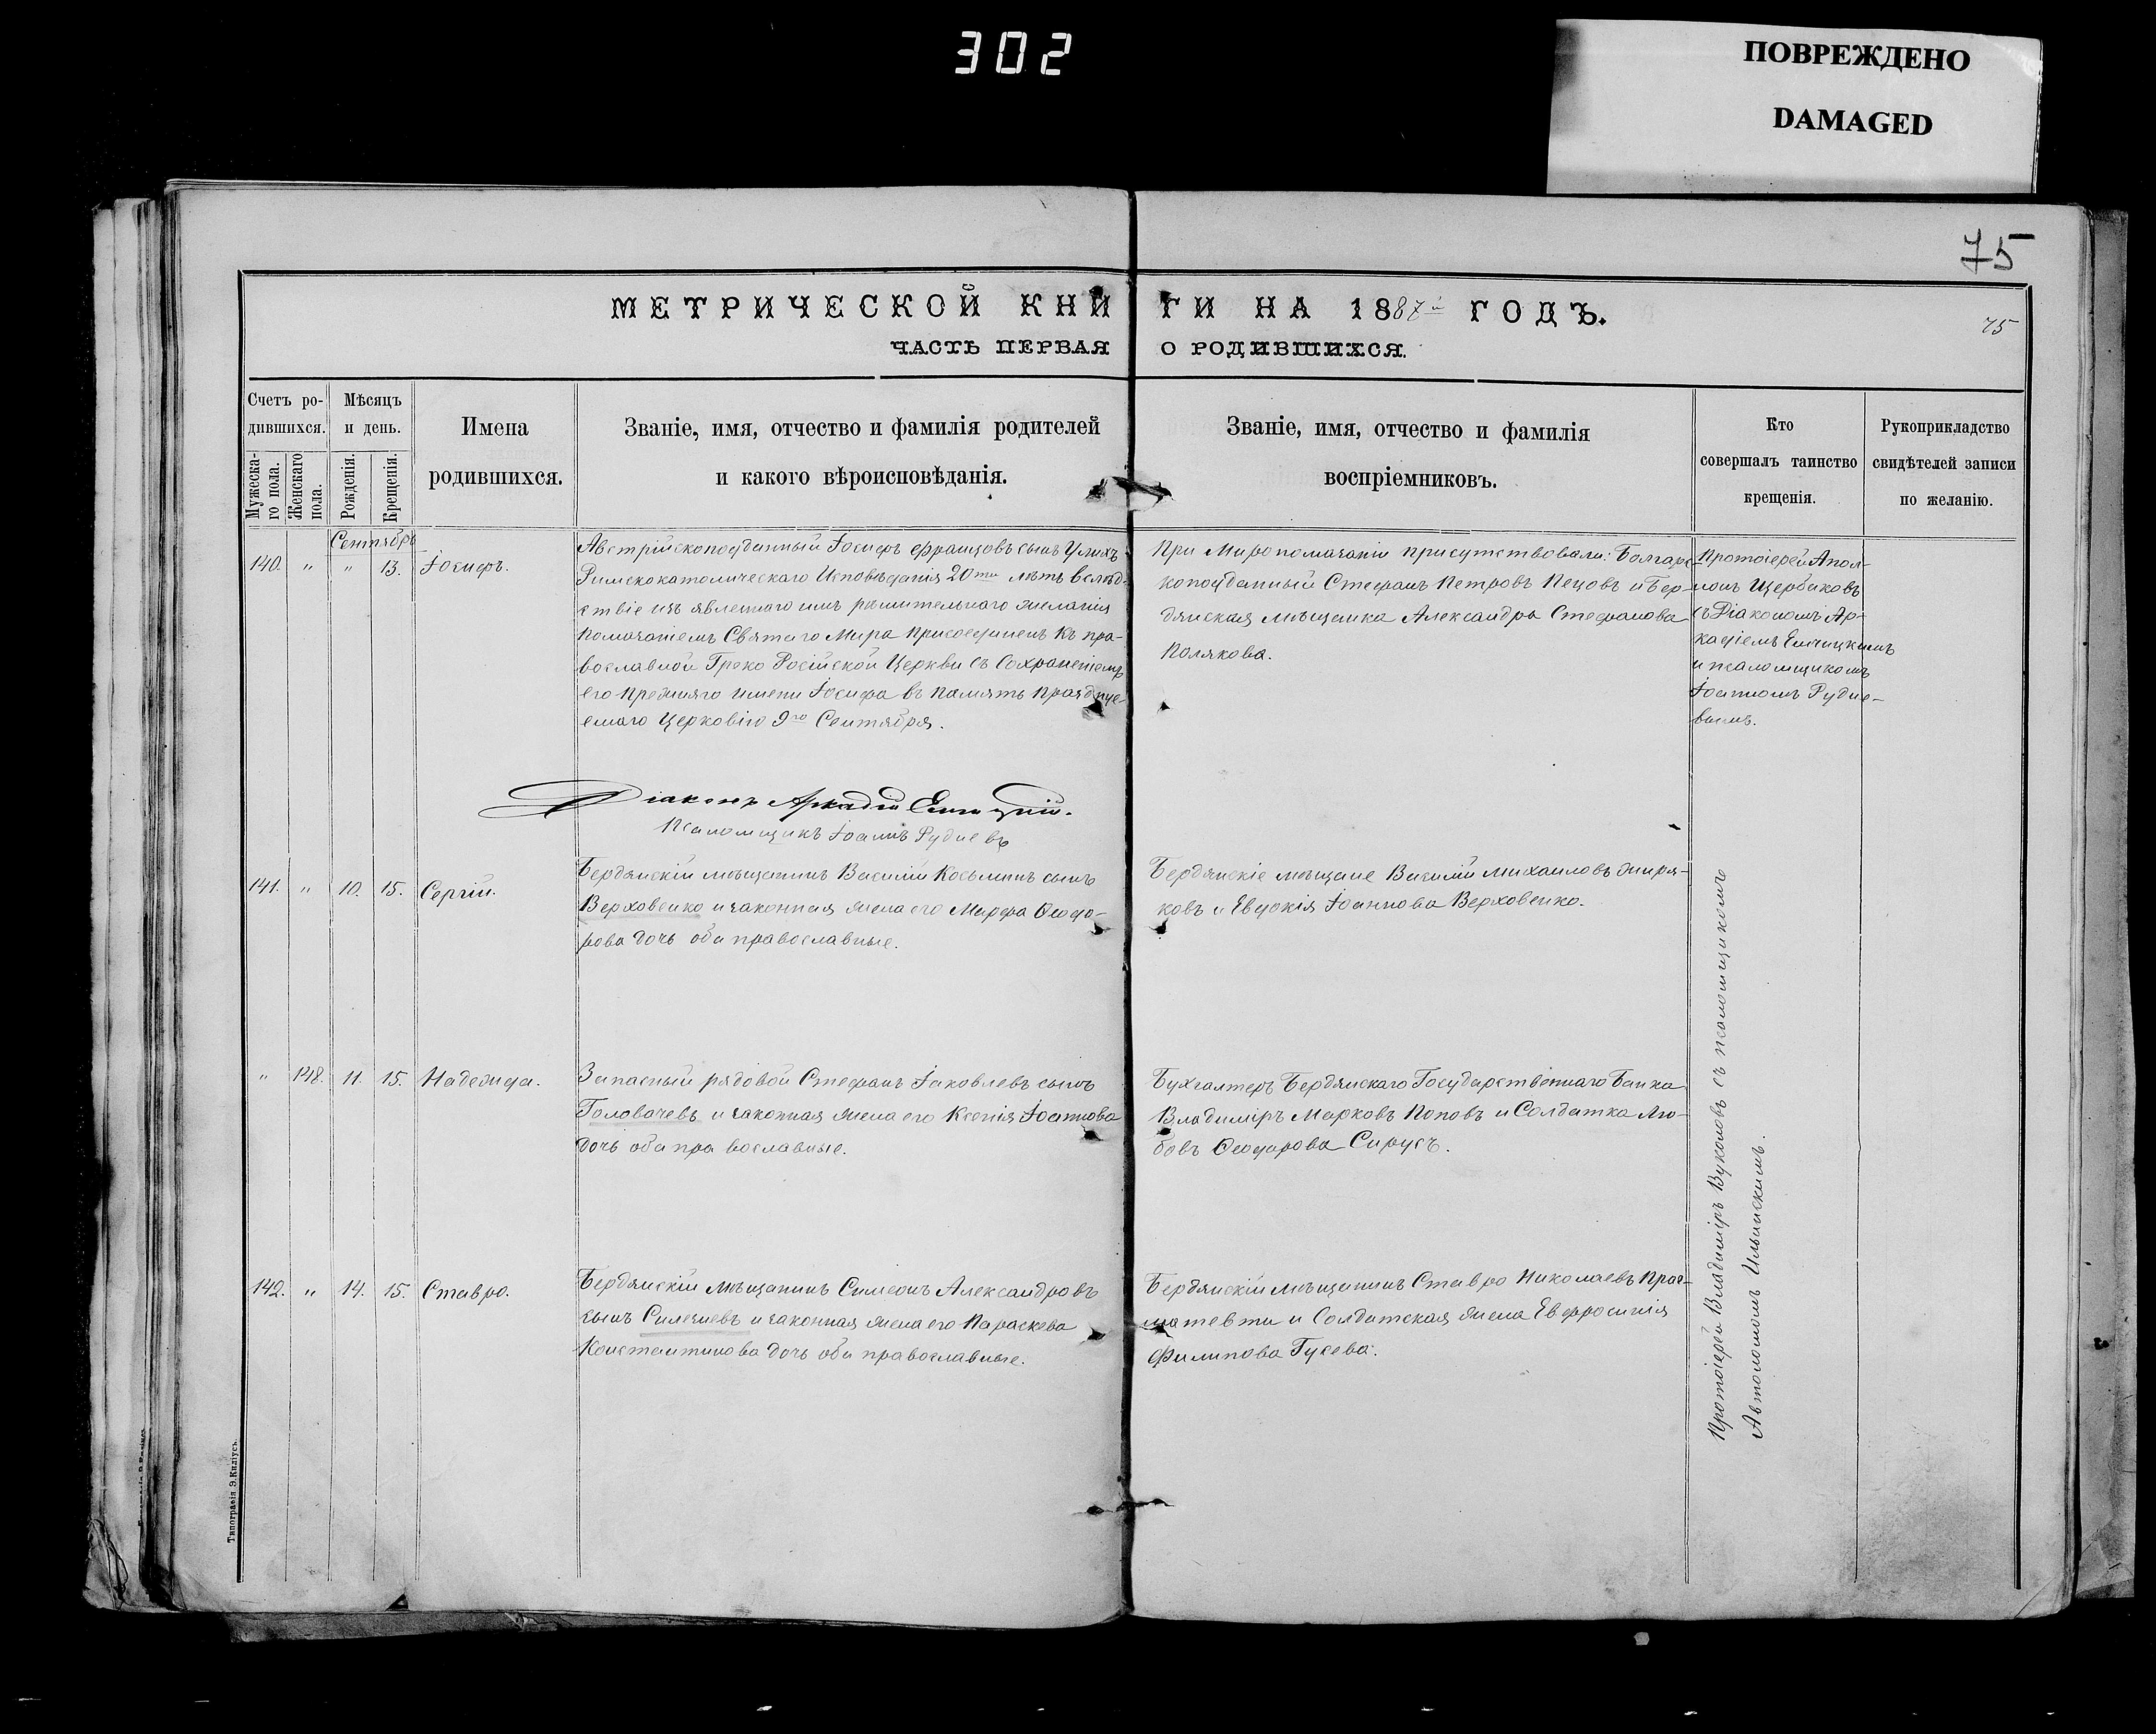 302
ПОВРЕЖДЕНО
DAMAGED
75
МЕТРИЧЕСКОЙ КНИГИ НА 1887й ГОДЪ.
75
ЧАСТЬ ПЕРВАЯ О РОДИВШИХСЯ.
Счетъ ро-
дившихся.
Мужеска-
го пола.
Женскаго
пола.
Мѣсяцъ
и день.
Рожденія.
Крещенія.
Имена
родившихся.
Званіе, имя, отчество и фамилія родителей
и какого вѣроисповѣданія.
Званіе, имя, отчество и фамилія
воспріемниковъ.
Кто
совершалъ таинство
крещенія.
Рукоприкладство
свидѣтелей записи
по желанію.
Сентябрь
140. " " 13. Іосифъ.
Австрійскоподданный Іосифъ Францовъ сынъ Улихъ
Римскокатолическаго Исповѣданія 20ти лѣтъ вслѣд-
ствіе изъявленнаго имъ рѣшительнаго желанія
помазаніемъ Святаго Мира присоединенъ къ пра-
вославной Греко Російской Церкви съ сохраненіемъ
его прежняго имени Іосифа въ память праздну-
емаго Церковію 9го Сентября.
При Миропомазаніи присутствовали: Болгарс-
коподданный Стефанъ Петровъ Пецовъ и Бер-
дянская мѣщанка Александра Стефанова
Полякова.
Протоіерей Апол-
лонъ Щербаковъ
съ Діакономъ Ар-
кадіемъ Енчицкимъ
и псаломщикомъ
Іоанномъ Рудне-
вымъ.
Діаконъ Аркадій Енчицкій.
Псаломщикъ Іоаннъ Рудневъ
141. " 10. 15. Сергій.
Бердянскій мѣщанинъ Василій Косьминъ сынъ
Верховенко и законная жена его Марфа Ѳеодо-
рова дочь оба православные.
Бердянскіе мѣщане Василій Михаиловъ Жиря-
ковъ и Евдокія Іоаннова Верховенко.
" 148. 11. 15. Надежда.
Запасный рядовой Стефанъ Іаковлевъ сынъ
Головачевъ и законная жена его Ксенія Іоаннова
дочь оба православные.
Бухгалтеръ Бердянскаго Государственнаго Банка
Владиміръ Марковъ Поповъ и Солдатка Лю-
бовь Ѳеодорова Сирусъ.
142. " 14. 15. Ставро.
Бердянскій мѣщанинъ Симеонъ Александровъ
сынъ Силечиевъ и законная жена его Параскева
Константинова дочь оба православные.
Бердянскій мѣщанинъ Ставро Николаевъ Праг-
матевти и Солдатская жена Евфросинія
Филипова Гусева.
Протоіерей Владиміръ Вуколовъ съ псаломщикомъ
Автономомъ Ильинскимъ.
Типографія Э. Киліусъ.